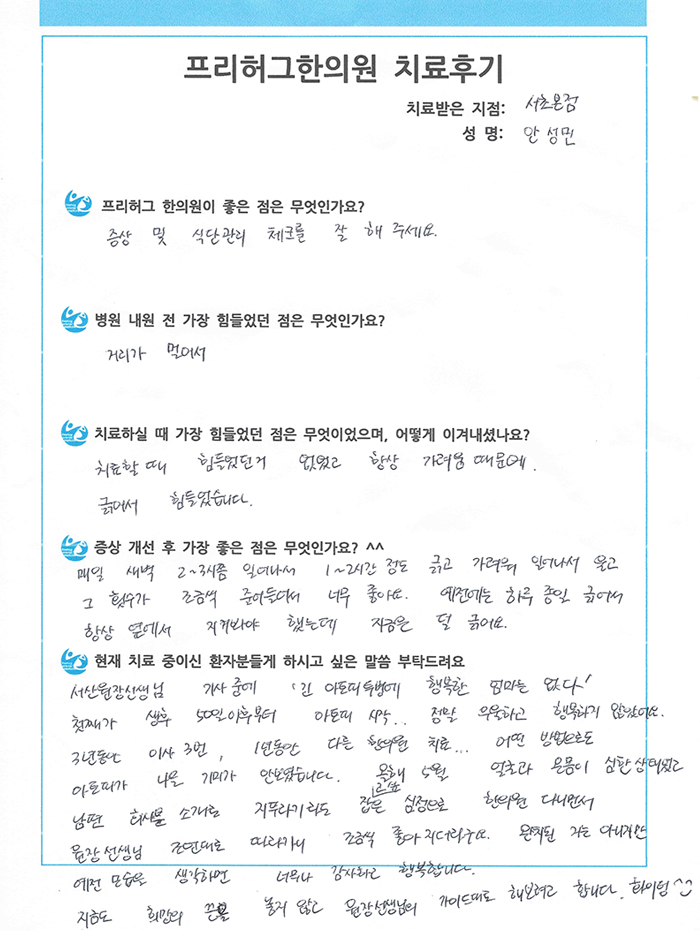 프리허그한의원 치료후기
치료받은 지점: 서초본점
성 명: 안성민
프리허그 한의원이 좋은 점은 무엇인가요?
증상 및 식단관리 체크를 잘 해 주세요.
병원 내원 전 가장 힘들었던 점은 무엇인가요?
거리가 멀어서
치료하실 때 가장 힘들었던 점은 무엇이었으며, 어떻게 이겨내셨나요?
치료할때 힘들었던거 없었고 항상 가려움 때문에.
긁어서 힘들었습니다.
증상 개선 후 가장 좋은 점은 무엇인가요? ^^
매일 새벽 2~3시쯤 일어나서 1~2시간 정도 긁고 가려워 일어나서 울고
그 횟수가 조금씩 줄어들어서 너무 좋아요. 예전에는 하루 종일 긁어서
항상 옆에서 지켜봐야 했는데 지금은 덜 긁어요.
현재 치료 중이신 환자분들게 하시고 싶은 말씀 부탁드려요
원장선생님 기사 중에 '긴 아토피 투병에 행복한 엄마는 없다'
첫째가 생후 50일이후부터 아토피 시작.. 정말 우울하고 행복하지 않았어요.
3년동안 이사 3번, 1년동안 다른 한의원 치료... 어떤 방법으로도
아토피가 나을 기미가 안보였습니다. 올해 5월 얼굴과 온몸이 심한 상태였고
남편 회사분 소개로 지푸라기라도 잡은 심정으로 한의원 다니면서
원장선생님 조언대로 따라가니 조금씩 좋아지더라구요. 완치된 자는 아니지만
예전 모습을 생각하면 너무나 감사하고 행복합니다.
지금도 희망의 끈을 놓지 않고 원장선생님의 가이드대로 해보려고 합니다. 화이팅 ^^